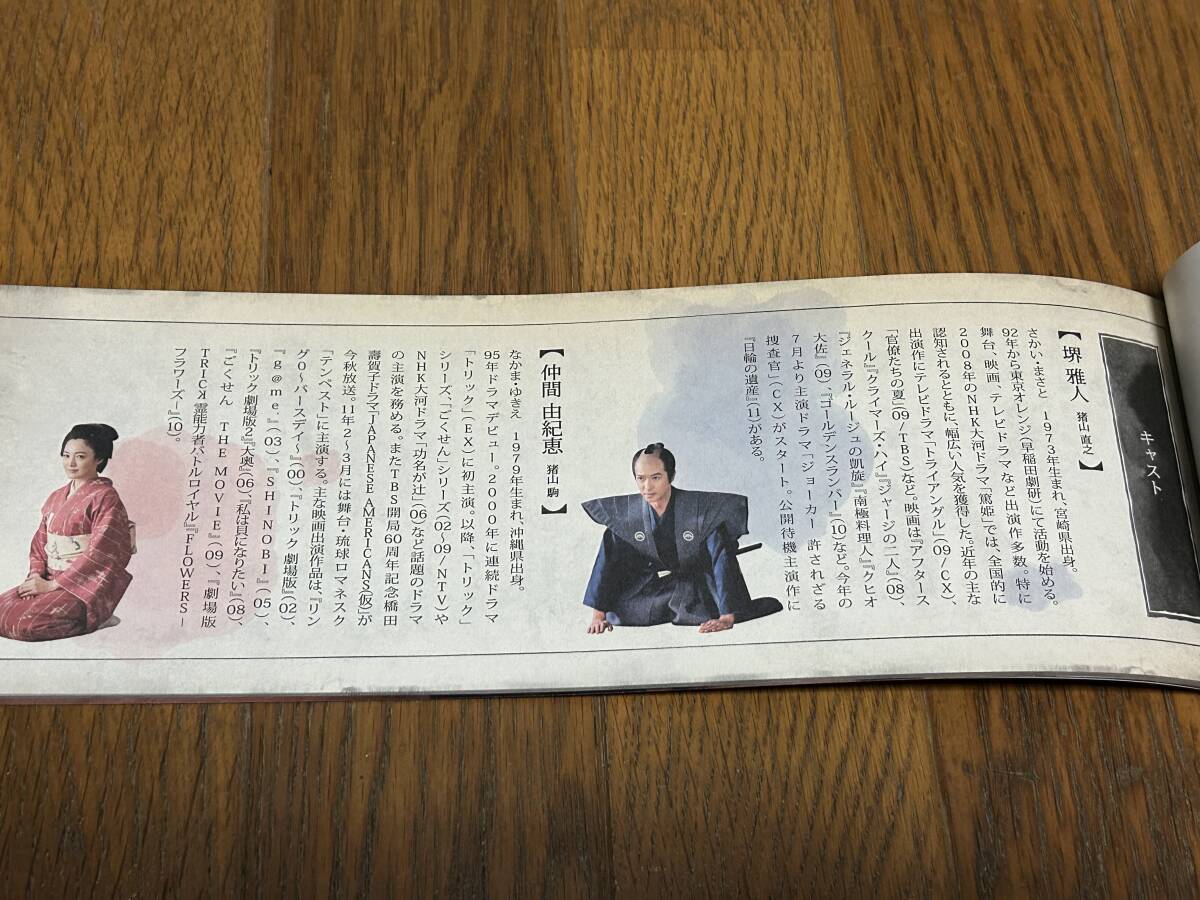 キャスト
【堺 雅人 猪山 直之】
さかい・まさと 1973年生まれ、宮崎県出身。
92年から東京オレンジ(早稲田劇研)にて活動を始める。
舞台、映画、テレビドラマなど出演作多数。特に
2008年のNHK大河ドラマ「篤姫」では、全国的に
認知されるとともに、幅広い人気を獲得した。近年の主な
出演作にテレビドラマ「トライアングル」(09/CX)、
「官僚たちの夏」(09/TBS)など。映画は『アフタース
クール』『クライマーズ・ハイ』『ジャージの二人』(08)、
『ジェネラル・ルージュの凱旋』『南極料理人』『クヒオ
大佐』(09)、『ゴールデンスランバー』(10)など。今年の
7月より主演ドラマ「ジョーカー 許されざる
捜査官」(CX)がスタート。公開待機主演作に
『日輪の遺産』(11)がある。
【仲間 由紀恵 猪山 駒】
なかま・ゆきえ 1979年生まれ、沖縄県出身。
95年ドラマデビュー。2000年に連続ドラマ
「トリック」(EX)に初主演。以降、「トリック」
シリーズ、「ごくせん」シリーズ(02〜09/NTV)や
NHK大河ドラマ「功名が辻」(06)など話題のドラマ
の主演を務める。またTBS開局60周年記念橋田
壽賀子ドラマ「JAPANESE AMERICANS(仮)」が
今秋放送。11年2〜3月には舞台・琉球ロマネスク
「テンペスト」に主演する。主な映画出演作品は『リン
グ0〜バースデイ〜』(00)、『トリック 劇場版』(02)、
『g@me.』(03)、『SHINOBI』(05)、
『トリック劇場版2』『大奥』(06)、『私は貝になりたい』(08)、
『ごくせん THE MOVIE』(09)、『劇場版
TRICK 霊能力者バトルロイヤル』『FLOWERS―
フラワーズ―』(10)。